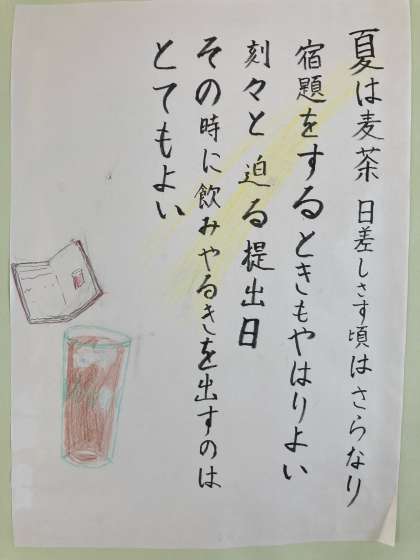 夏は麦茶 日差しさす頃はさらなり
宿題をするときもやはりよい
刻々と迫る提出日
その時に飲みやるきを出すのは
とてもよい